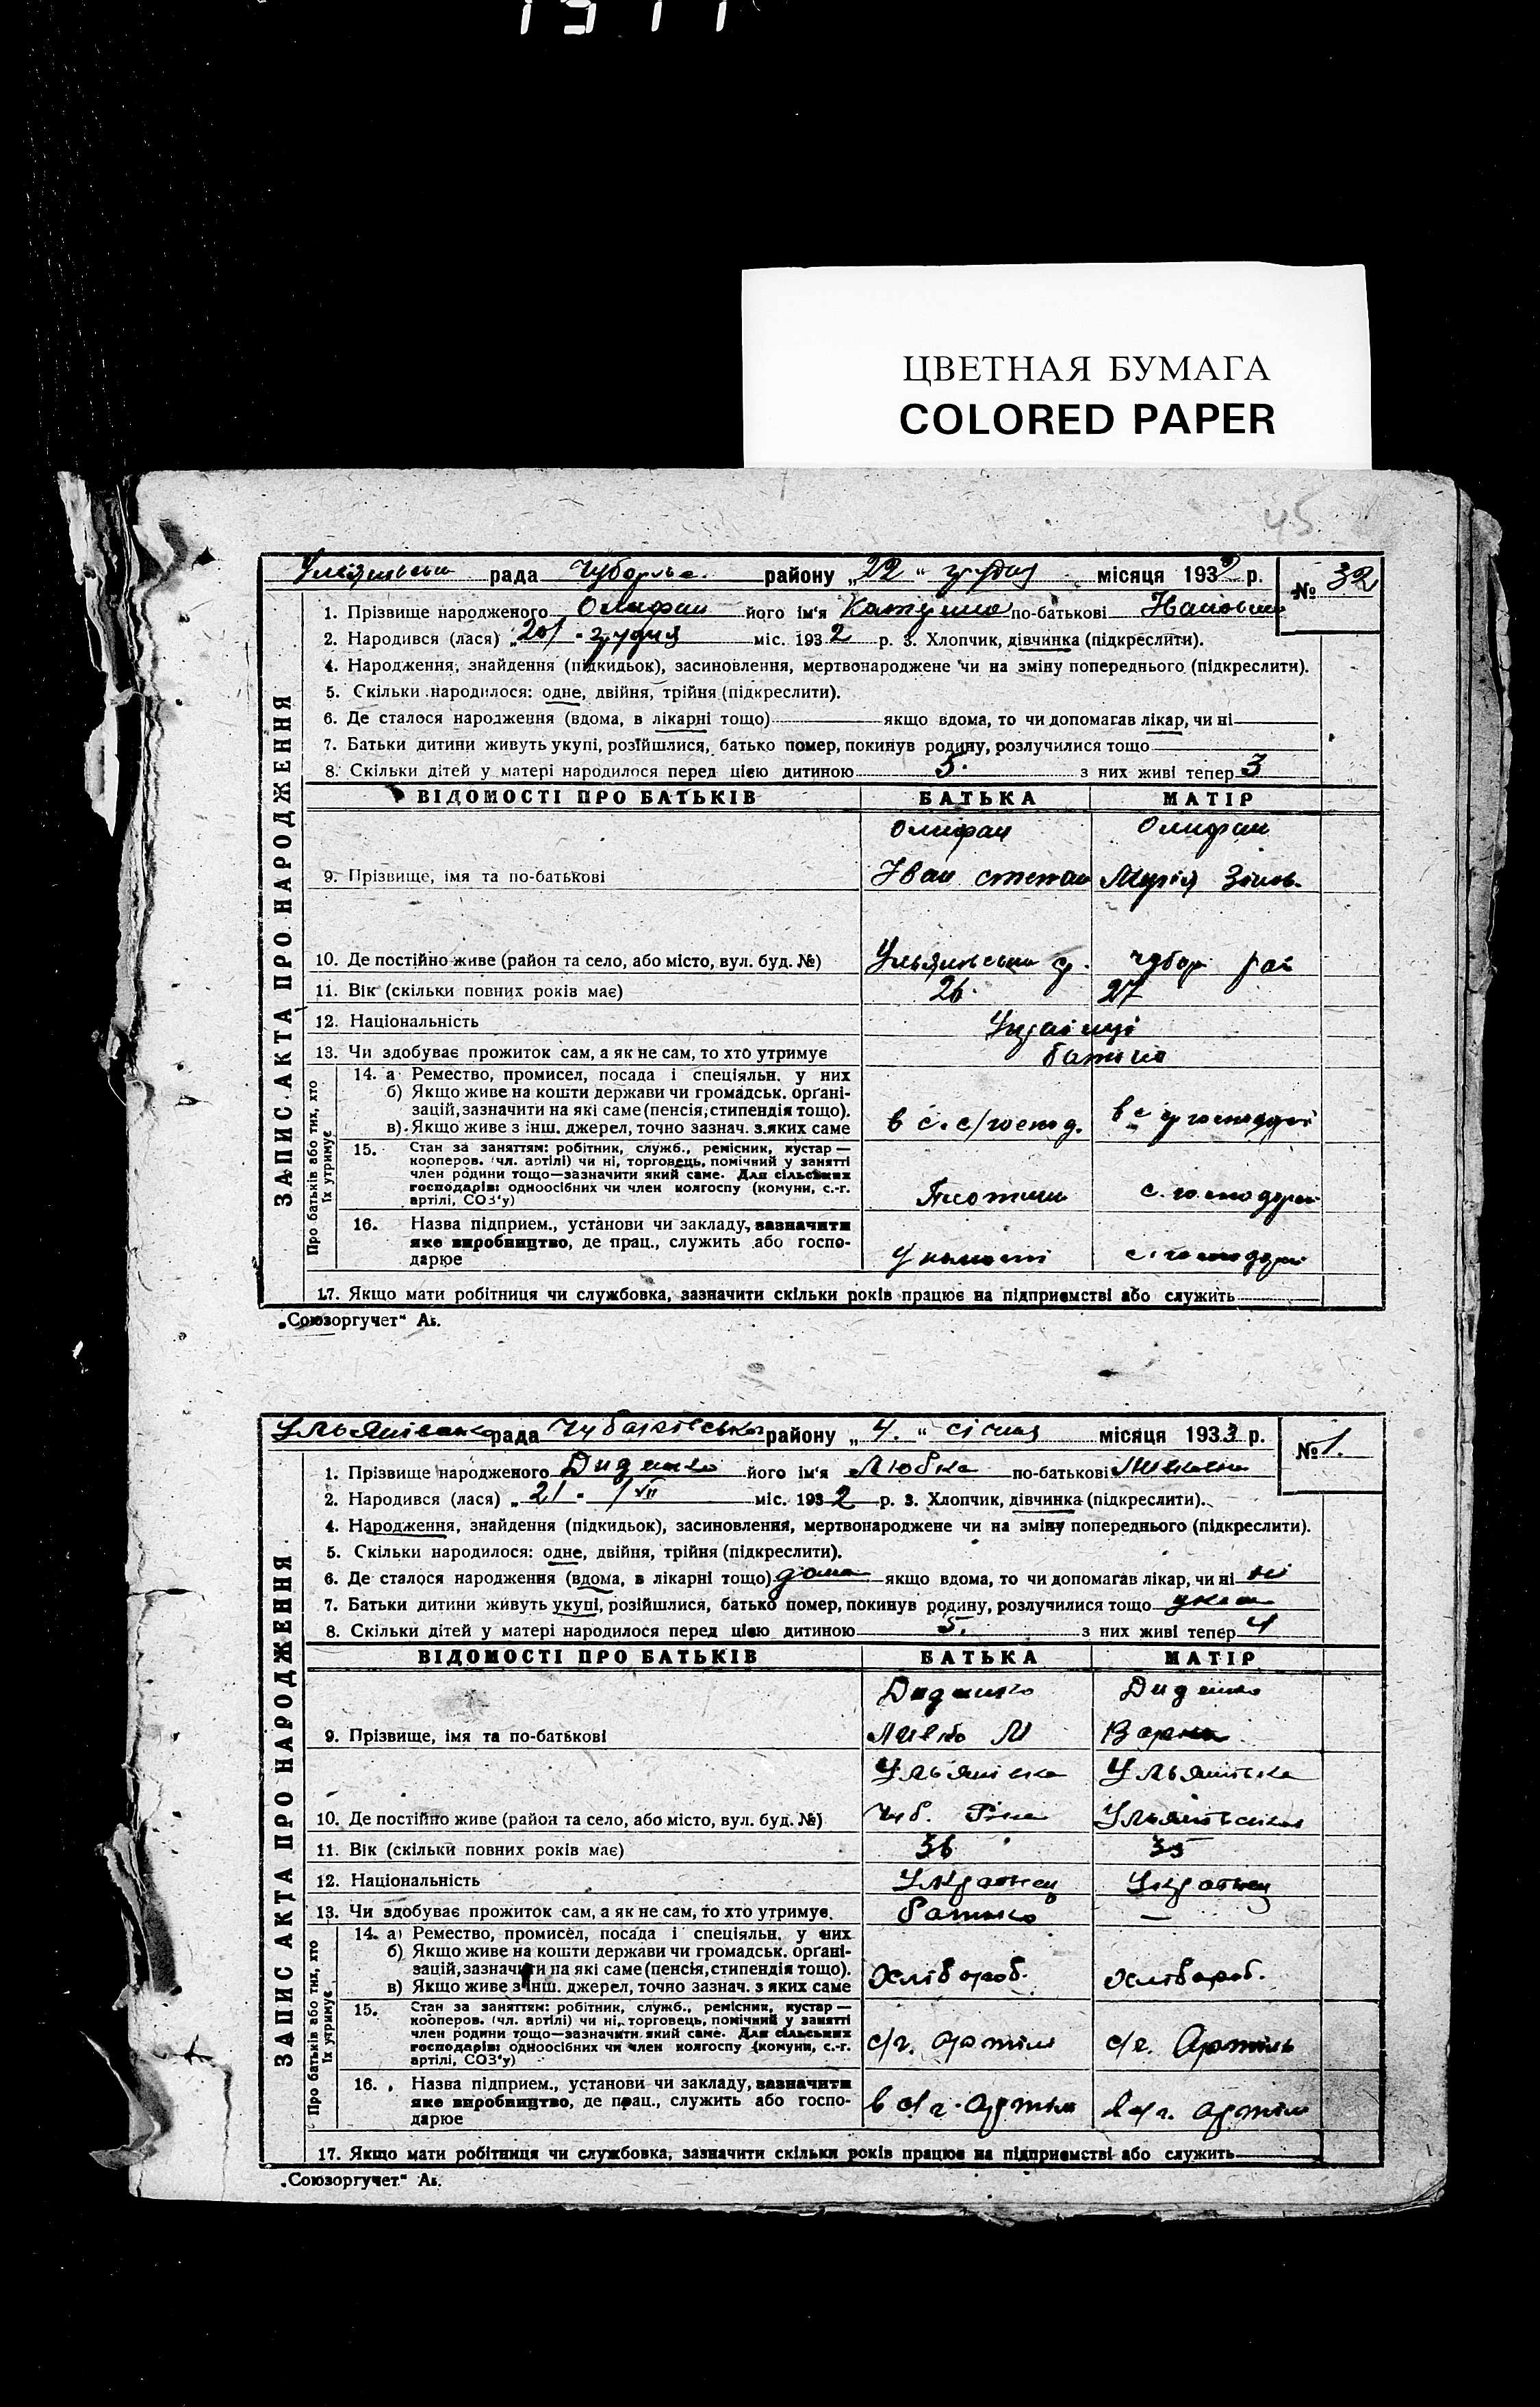 ЦВЕТНАЯ БУМАГА
COLORED PAPER
45
рада Чубарівс. району „22“ грудня місяця 1932 р. № 32
1. Прізвище народженого Олифан його ім'я по-батькові Ивановна
2. Народився (лася) „20“ грудня міс. 1932 р. 3. Хлопчик, дівчинка (підкреслити).
4. Народження, знайдення (підкидьок), засиновлення, мертвонароджене чи на зміну попереднього (підкреслити).
5. Скільки народилося: одне, двійня, трійня (підкреслити).
6. Де сталося народження (вдома, в лікарні тощо) якщо вдома, то чи допомагав лікар, чи ні
7. Батьки дитини живуть укупі, розійшлися, батько помер, покинув родину, розлучилися тощо
8. Скільки дітей у матері народилося перед цією дитиною 5. з них живі тепер 3
ВІДОМОСТІ ПРО БАТЬКІВ БАТЬКА МАТІР
Олифан Олифан
9. Прізвище, імя та по-батькові Иван степан Марія Зінов.
10. Де постійно живе (район та село, або місто, вул. буд. №) Ульянівська чубар рай
11. Вік (скільки повних років має) 26. 27
12. Національність Українці
13. Чи здобуває прожиток сам, а як не сам, то хто утримує батько
14. а Ремество, промисел, посада і спеціяльн. у них
б) Якщо живе на кошти держави чи громадськ. орґані-
зацій, зазначити на які саме (пенсія, стипендія тощо).
в). Якщо живе з інш. джерел, точно зазнач. з яких саме в с. с/господ. в с господарі
15. Стан за заняттям: робітник, служб., ремісник, кустар—
кооперов. (чл. артілі) чи ні, торговець, помічний у занятті
член родини тощо—зазначити який саме. Для сільських
господарів: одноосібних чи член колгоспу (комуни, с.-г.
артілі, СОЗ'у) Плотник с. господарі
16. Назва підприєм., установи чи закладу, зазначити
яке виробництво, де прац., служить або госпо-
дарює с. господарі
17. Якщо мати робітниця чи службовка, зазначити скільки років працює на підприємстві або служить
ЗАПИС АКТА ПРО НАРОДЖЕННЯ
Про батьків або тих, хто
їх утримує
„Союзоргучет“ Аь.
Ульянівська рада Чубарівська району „4.“ січня місяця 1933 р. № 1.
1. Прізвище народженого Диденко його ім'я Любка по-батькові
2. Народився (лася) „21“ /XII міс. 1932 р. 3. Хлопчик, дівчинка (підкреслити).
4. Народження, знайдення (підкидьок), засиновлення, мертвонароджене чи на зміну попереднього (підкреслити).
5. Скільки народилося: одне, двійня, трійня (підкреслити).
6. Де сталося народження (вдома, в лікарні тощо) дома якщо вдома, то чи допомагав лікар, чи ні ні
7. Батьки дитини живуть укупі, розійшлися, батько помер, покинув родину, розлучилися тощо укупі
8. Скільки дітей у матері народилося перед цією дитиною 5. з них живі тепер 4
ВІДОМОСТІ ПРО БАТЬКІВ БАТЬКА МАТІР
Диденко Диденко
9. Прізвище, імя та по-батькові М
Ульянівка Ульянівка
10. Де постійно живе (район та село, або місто, вул. буд. №) Чуб. Ульянівська
11. Вік (скільки повних років має) 36 35
12. Національність Украінец Украінец
13. Чи здобуває прожиток сам, а як не сам, то хто утримує. батько —
14. а) Ремество, промисел, посада і спеціяльн. у них
б) Якщо живе на кошти держави чи громадськ. орґані-
зацій, зазначити на які саме (пенсія, стипендія тощо).
в) Якщо живе з інш. джерел, точно зазнач. з яких саме Хлібороб. Хлібороб.
15. Стан за заняттям: робітник, служб., ремісник, кустар—
кооперов. (чл. артілі) чи ні, торговець, помічний у занятті
член родини тощо—зазначити який саме. Для сільських
господарів: одноосібних чи член колгоспу (комуни, с.-г.
артілі, СОЗ'у) с/г. артіль с/г. Артіль
16. Назва підприєм., установи чи закладу, зазначити
яке виробництво, де прац., служить або госпо-
дарює в с/г. артілі в с/г. артілі
17. Якщо мати робітниця чи службовка, зазначити скільки років працює на підприємстві або служить
ЗАПИС АКТА ПРО НАРОДЖЕННЯ
Про батьків або тих, хто
їх утримує
„Союзоргучет“ Аь.